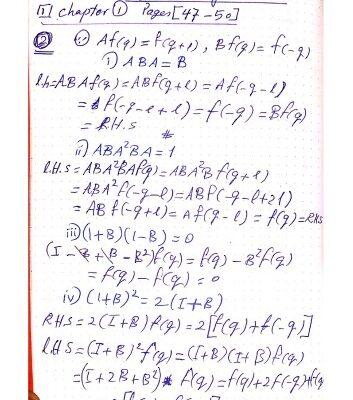 ① chapter ① Pages [47-50]
② ∴ Af(q) = f(q+l), Bf(q) = f(-q)
i) ABA = B
l.h = ABAf(q) = ABf(q+l) = Af(-q-l)
= f(-q-l+l) = f(-q) = Bf(q)
= R.H.S #
ii) ABA²BA = 1
L.H.S = ABA²BAf(q) = ABA²Bf(q+l)
= ABA²f(-q-l) = ABf(-q-l+2l)
= ABf(-q+l) = Af(q-l) = f(q) = R.H.S
iii) (1+B)(1-B) = 0
(I - B + B - B²)f(q) = f(q) - B²f(q)
= f(q) - f(q) = 0
iv) (1+B)² = 2(I+B)
R.H.S = 2(I+B)f(q) = 2[f(q)+f(-q)]
L.H.S = (I+B)²f(q) = (I+B)(I+B)f(q)
= (I+2B+B²) f(q) = f(q)+2f(-q)+f(q